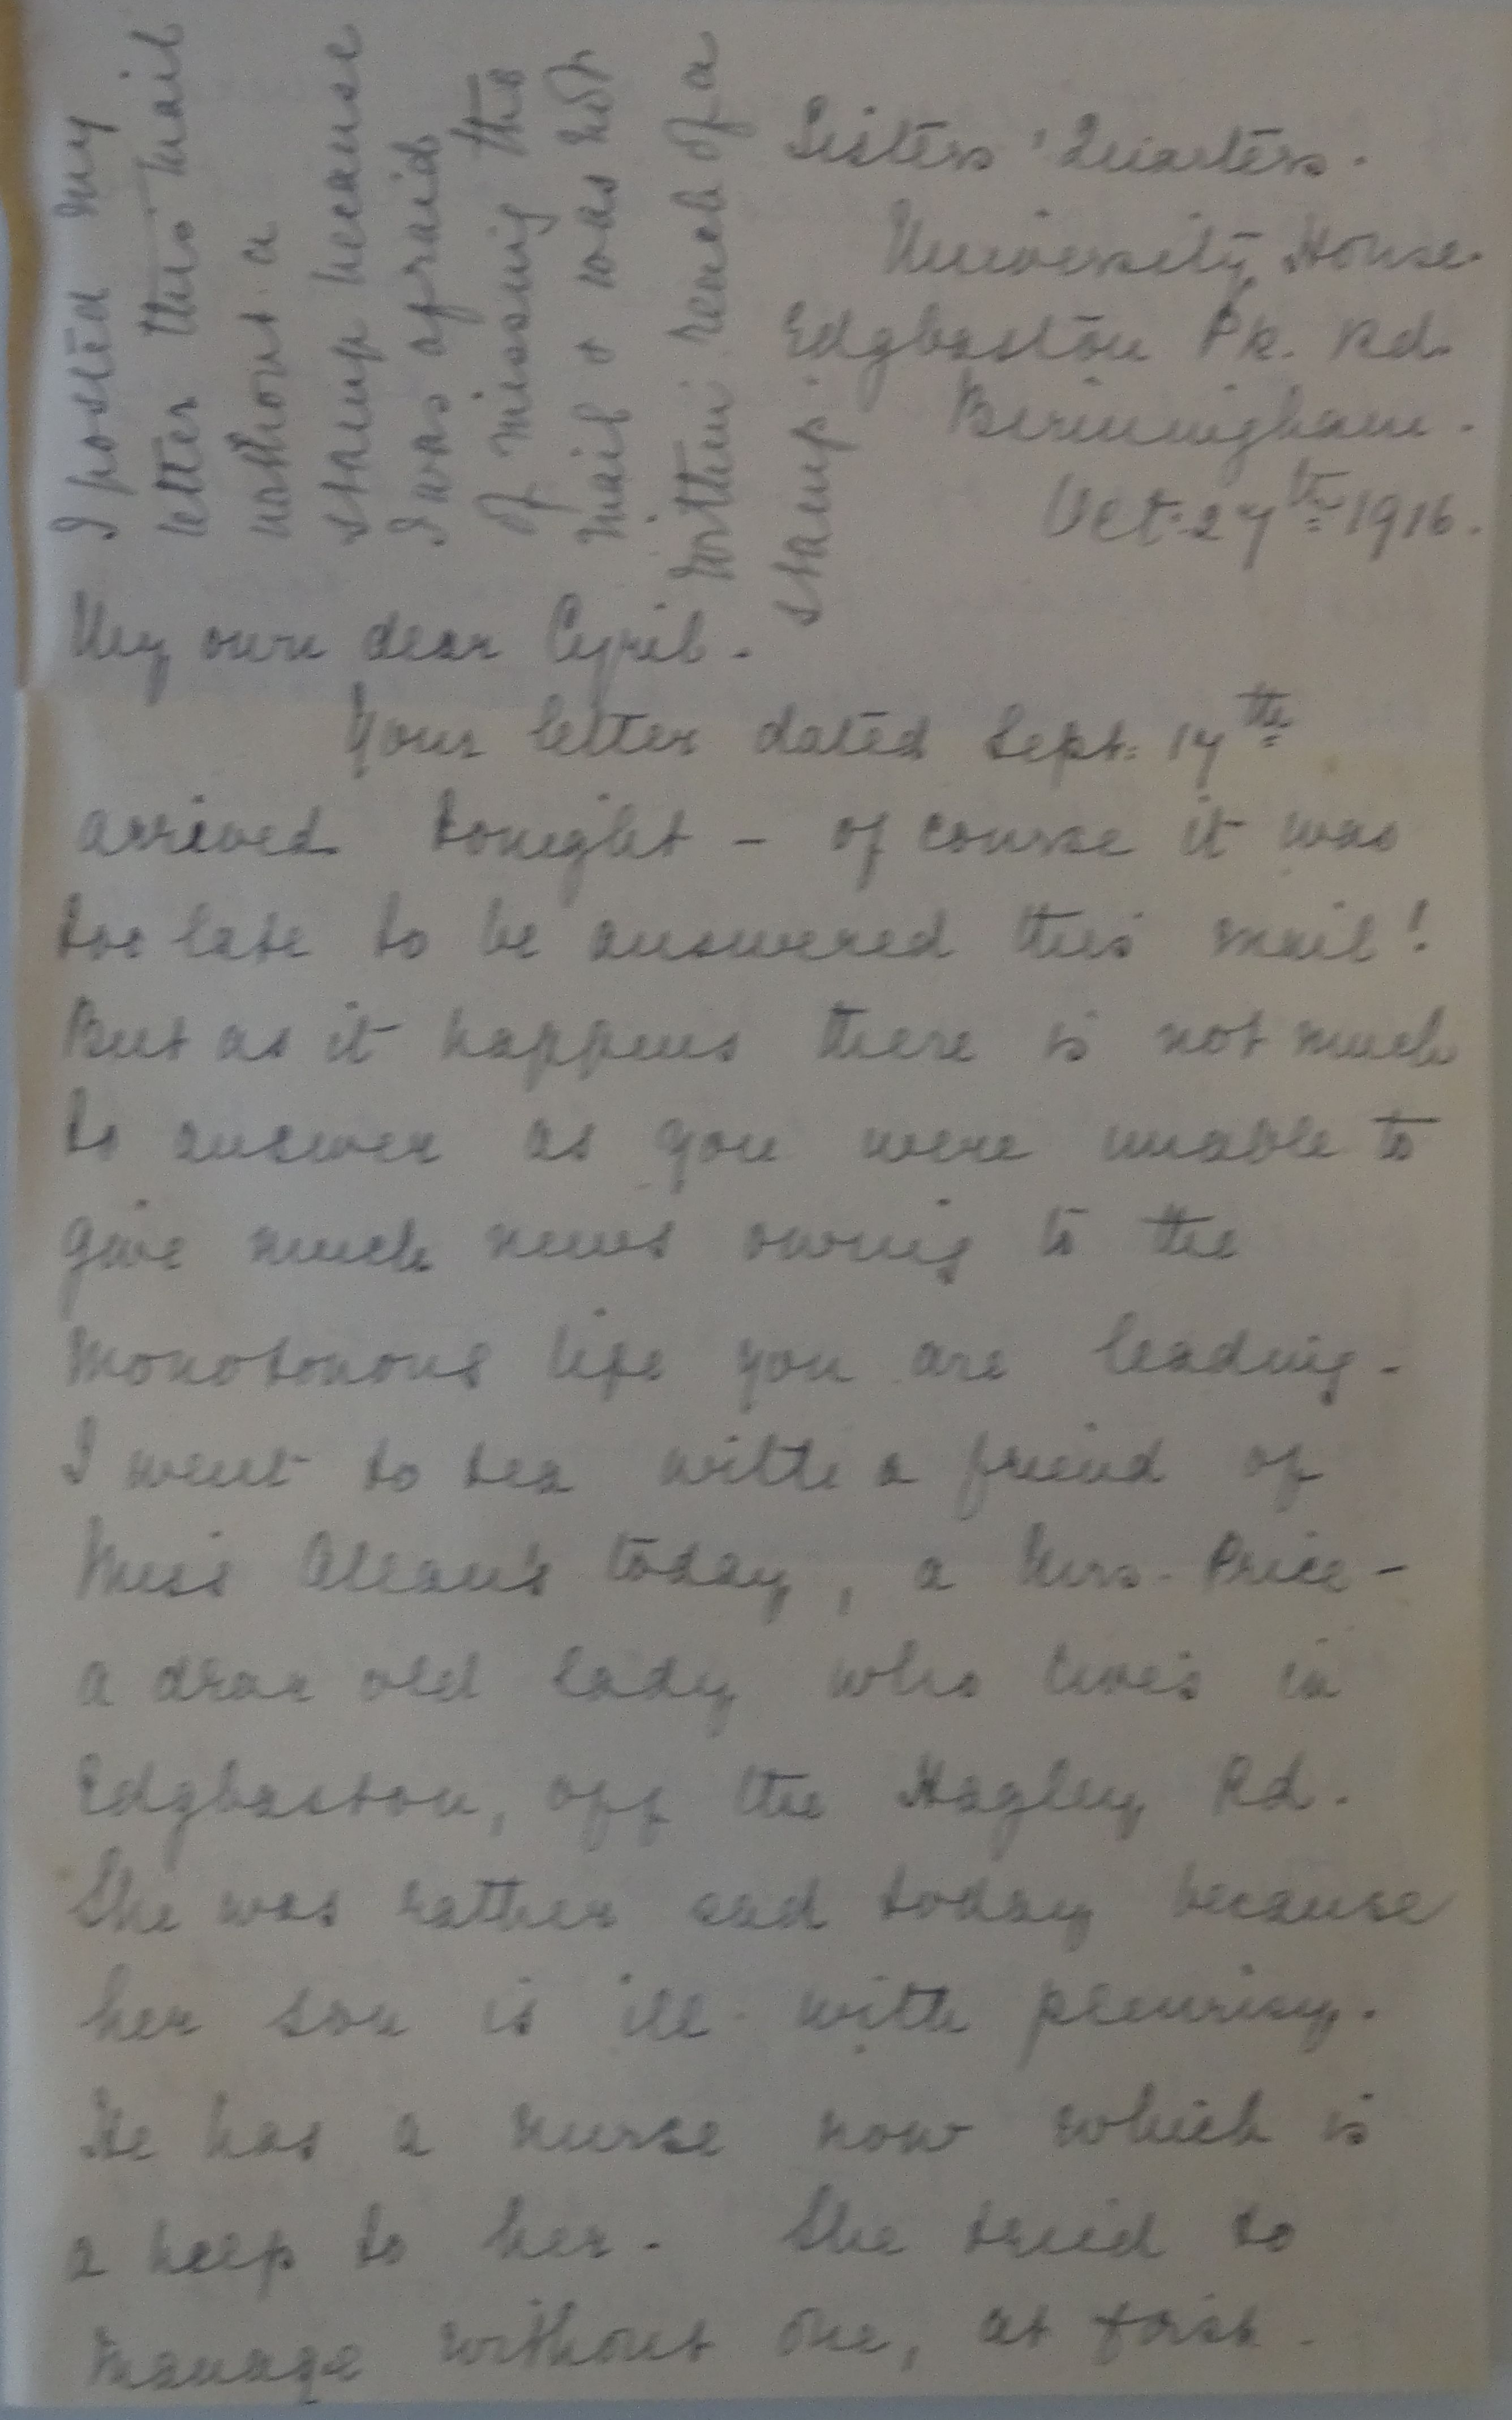 Sisters' Quarters.
University House.
Edgbaston Pk. Rd.
Birmingham.
Oct. 27th 1916.
I posted my
letter this mail
without a
stamp because
I was afraid
of missing the
mail & was not
within reach of a
stamp.
My own dear Cyril.
Your letter dated Sept. 17th
arrived tonight - of course it was
too late to be answered this mail!
But as it happens there is not much
to answer as you were unable to
give much news owing to the
monotonous life you are leading.
I went to tea with a friend of
Miss Allan's today, a Mrs. Price -
a dear old lady who lives in
Edgbaston, off the Hagley Rd.
She was rather sad today because
her son is ill with pleurisy.
He has a nurse now which is
a help to her. She tried to
manage without one, at first.